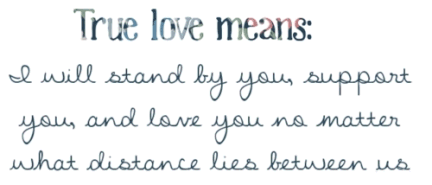 True love means:
I will stand by you, support
you, and love you no matter
what distance lies between us